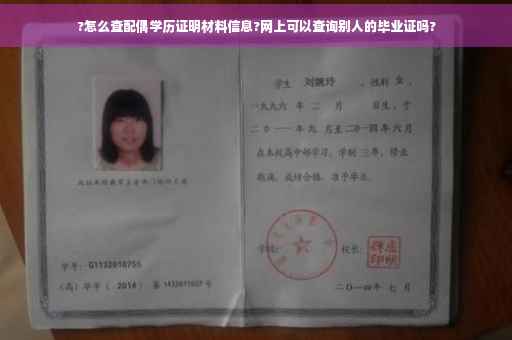 ?怎么查配偶学历证明材料信息?网上可以查询别人的毕业证吗?
学生 刘婉玲 ，性别 女 ，
一九九六 年 二 月 日生，于
二〇一一 年 九 月至 二〇一四 年 六 月
在本校高中部学习，学制 三 年，修业
期满，成绩合格，准予毕业。
学校:
校长:
学号: G1132010755
(高) 毕字 ( 2014 ) 第 1432011027 号
二〇一四年 七 月